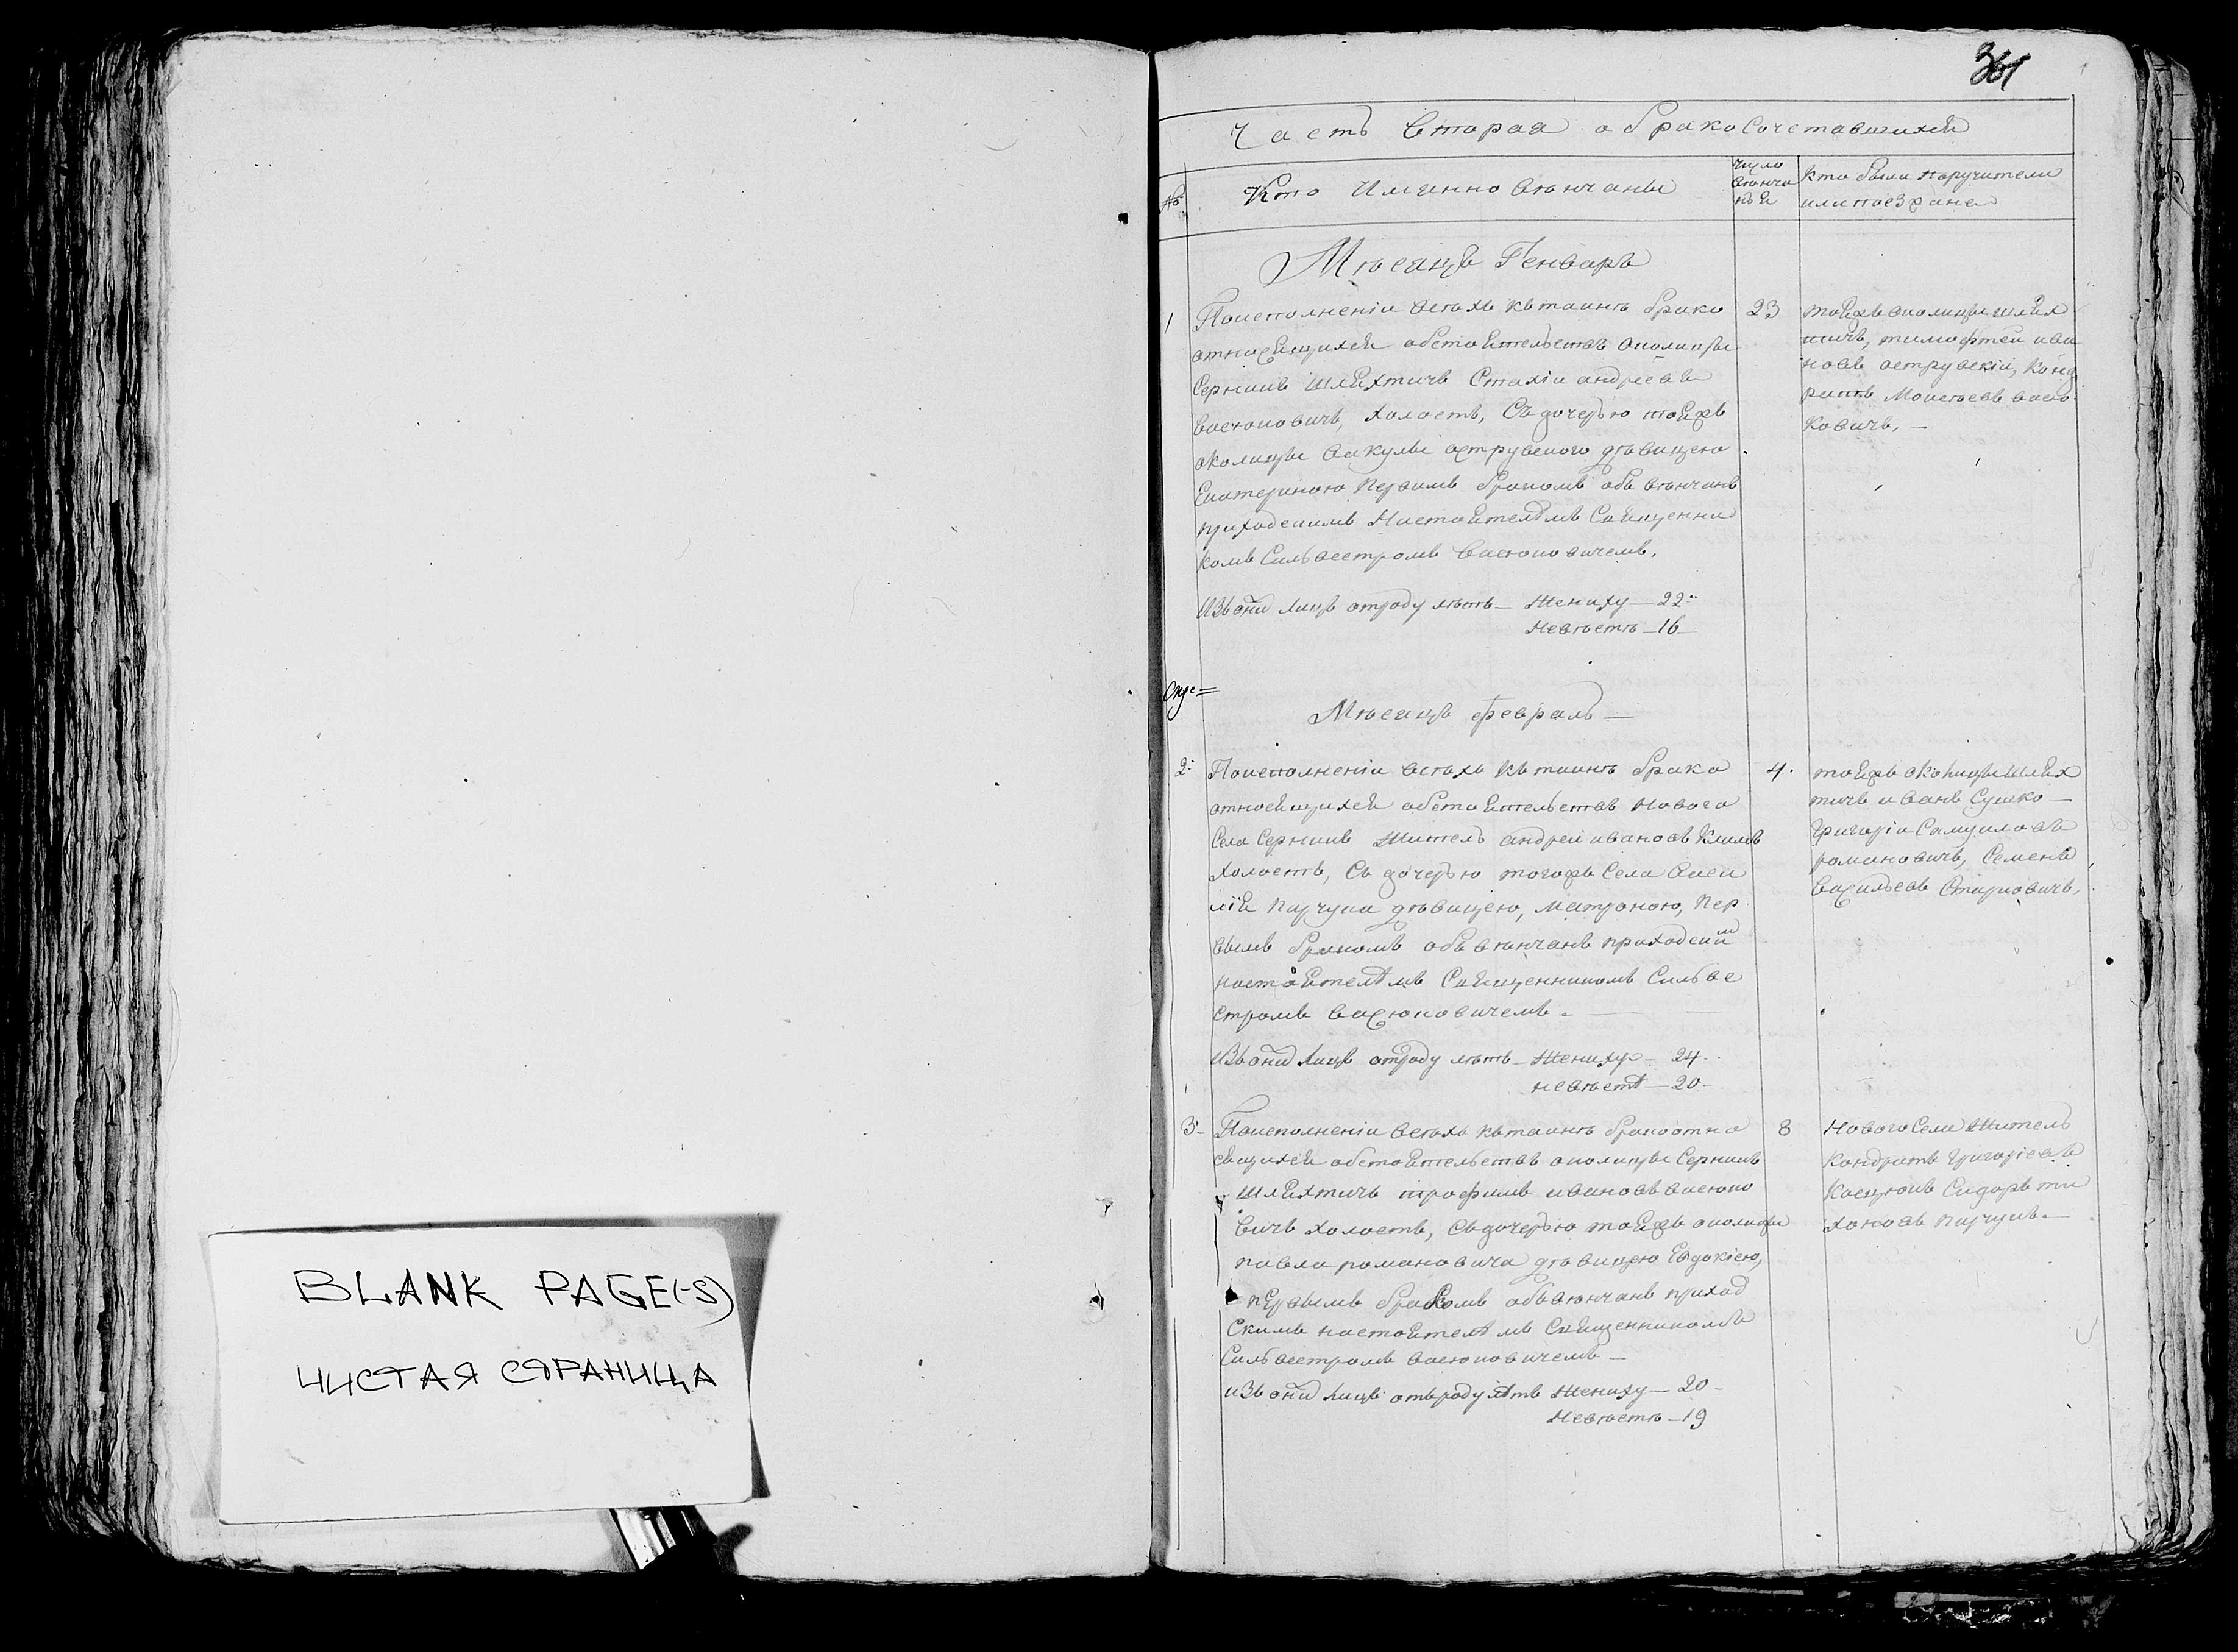 BLANK PAGE(-S)
ЧИСТАЯ СТРАНИЦА
361
Часть вторая о бракосочетавшихся
№
Кто имянно венчаны
число
венча
ния
кто были поручители
или поезжане
Месяцъ Генварь
1
По исполненіи всехъ къ таинъ брака
относящихся обстоятельствъ околицы
Серникъ шляхтичъ Стахіи андреевъ
васюковичъ, холостъ, Съ дочерью тоейжъ
околицы вакулы острувского девицею
Екатериною первимъ бракомъ обвенчанъ
приходскимъ Настоятелемъ Священни
комъ Сильвестромъ Васюковичемъ.
Изъ они лицъ отроду летъ – Жениху – 22
Невесте – 16
23
тоейжъ околицы шлях
тичъ, тимофтей ива
новъ острувскій, Конд
ратъ Моисеевъ васю
ковичъ. –
Месяцъ февраль –
2
По исполненіи всехъ къ таинъ брака
относящихся обстоятельствъ Нового
Села Серникъ Житель андрей ивановъ Климъ
Холостъ, Съ дочерью тогожъ Села васи
лія парчука девицею, матроною, пер
вымъ бракомъ обвенчанъ приходским
настоятелемъ Священникомъ Сильве
стромъ васюковичемъ.
Изъ они лицъ отроду летъ – Жениху – 24
невесте – 20
4
тоейжъ околицы шлях
тичъ иванъ Сушко –
григорій Самуиловъ
романовичъ, Семенъ
васильевъ
3
По исполненіи всехъ къ таинъ брака отно
сящихся обстоятельствъ околицы Серникъ
шляхтичъ трофимъ ивановъ васюко
вичъ холостъ, Съ дочерью тоейжъ околицы
павла романовича девицею Евдокіею,
первымъ бракомъ обвенчанъ приход
Скимъ настоятелемъ Священникомъ
Сильвестромъ васюковичемъ –
изъ они лицъ отъроду летъ Жениху – 20
Невесте – 19
8
Нового Села Житель
Кондратъ григоріевъ
Касцюкъ Сидоръ ти
хоновъ парчукъ –